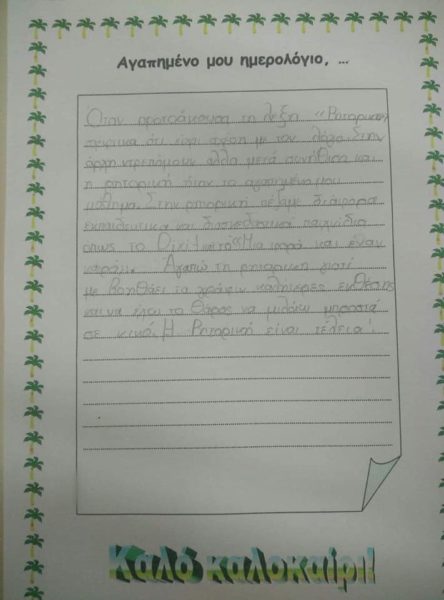 Αγαπημένο μου ημερολόγιο, ...
Όταν πρωτοάκουσα τη λέξη "Ρητορική"
ότι είχε σχέση με τον λόγο. Στην
αρχή ντρεπόμουν αλλά μετά συνήθισα και
η ρητορική ήταν το αγαπημένο μου
μάθημα. Στην ρητορική παίξαμε διάφορα
εκπαιδευτικά και διασκεδαστικά παιχνίδια
όπως το "Μια φορά και έναν
καιρό". Αγαπώ τη ρητορική γιατί
με βοηθάει να γράφω καλύτερες εκθέσεις
και να έχω το θάρρος να μιλάω μπροστά
σε κοινό. Η Ρητορική είναι τέλεια!
Καλό καλοκαίρι!